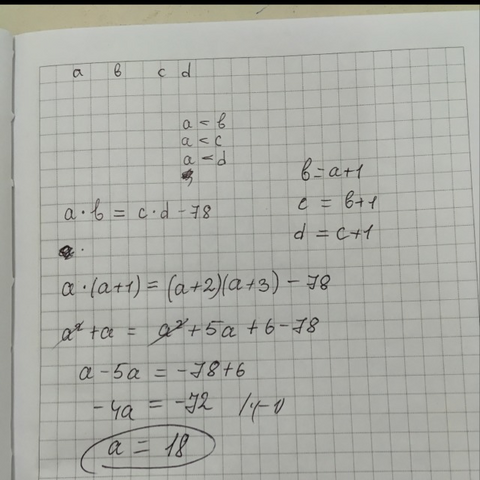 a в c d
a < в
a < c
a < d
в = a+1
c = в+1
d = c+1
a · в = c · d - 78
a · (a+1) = (a+2)(a+3) - 78
a² + a = a² + 5a + 6 - 78
a - 5a = -78 + 6
-4a = -72
a = 18